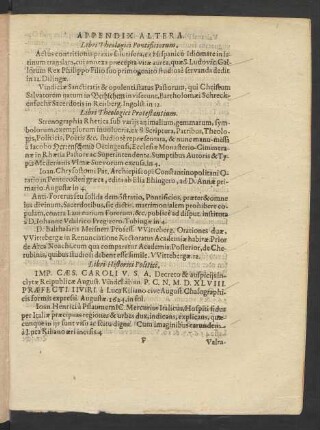 APPENDIX ALTERA.
Libri Theologici Pontificiorum.
Actus contritionis praxis ex Hispanico Idiomate in la-
tinum translata, cui annexa præcepta vitæ aurea, S. Ludovici Gal-
lorum Rex Philippo Filio suo primogenito studiose servanda dedit
in 12. Dilingæ.
Vindiciæ Sanctitatis & opulentiæ Pastorum, qui Christum
Salvatorem natum in Bethlehem inviserunt, Bartholomæi Schrec-
Sacerdotis in Ingolst. in 12.
Libri Theologici Protestantium.
Scenographia Rhetica sub variis imaginum, genimatum, sym-
bolorum, exemplorum involucris, ex S. Scriptura, Patribus, Theolo-
gis, Politicis, Poetis &c. studiose repræsentata, & nunc manu
à Iacobo Oetingensis, Ecclesiæ Monasterio-Ciminera-
næ in Rhætia Pastore ac Superintendente. Sumptibus Autoris & Ty-
pis Mederianis Vlmæ Suevorum excusa in 4.
Ioan. Chrysostomi Pat. Archiepiscopi Constantinopolitani O-
rationis in Pentecosten græca, edita ab Elia Ehingero, ad D. Annæ pri-
mario Augustæ in 4.
Anti-Forerus seu solida demonstratio, Pontificios, præter & con-
tra divinum, Sacerdotibus de dictis, meritò
cutam, contra Laurentium Forerum, &c. publicè ad disput. instituta
à D. Iohanne Valdrico Pregizero. Tubingæ in 4.
D. Balthasaris Meisner Profess. VVitteberg. Orationes duæ
VVittebergæ in Renunciatione Rectoratus Academiæ habitæ, Prior
de Arca Noachi cum qua comparatur Academia: Posterior, de Che-
rubinis, quibus studiosi debent esse similes. VVittebergæ 12.
Libri Historici Politici.
IMP. CÆS. CAROLI V. S. A. Decreto & auspiciis in-
clytæ Reipublicæ August. Vindel. P. C. N. M. D. XLVIII.
PRÆFECTI IIVIRI à Luca Kiliano cive August. Chalcographi-
cis formis expressi Augustæ 1624. in fol.
Ioan. Henrici à Pflaumern IC. Mercurius Italicus, Hospiti fidus
per Italiæ præcipuas regiones & urbes dux, indicans, explicans, quæ-
cunque in iis sunt visu ac scitu digna. Cum imaginibus earundem
à Luca Kiliano æri incisis 4.
F